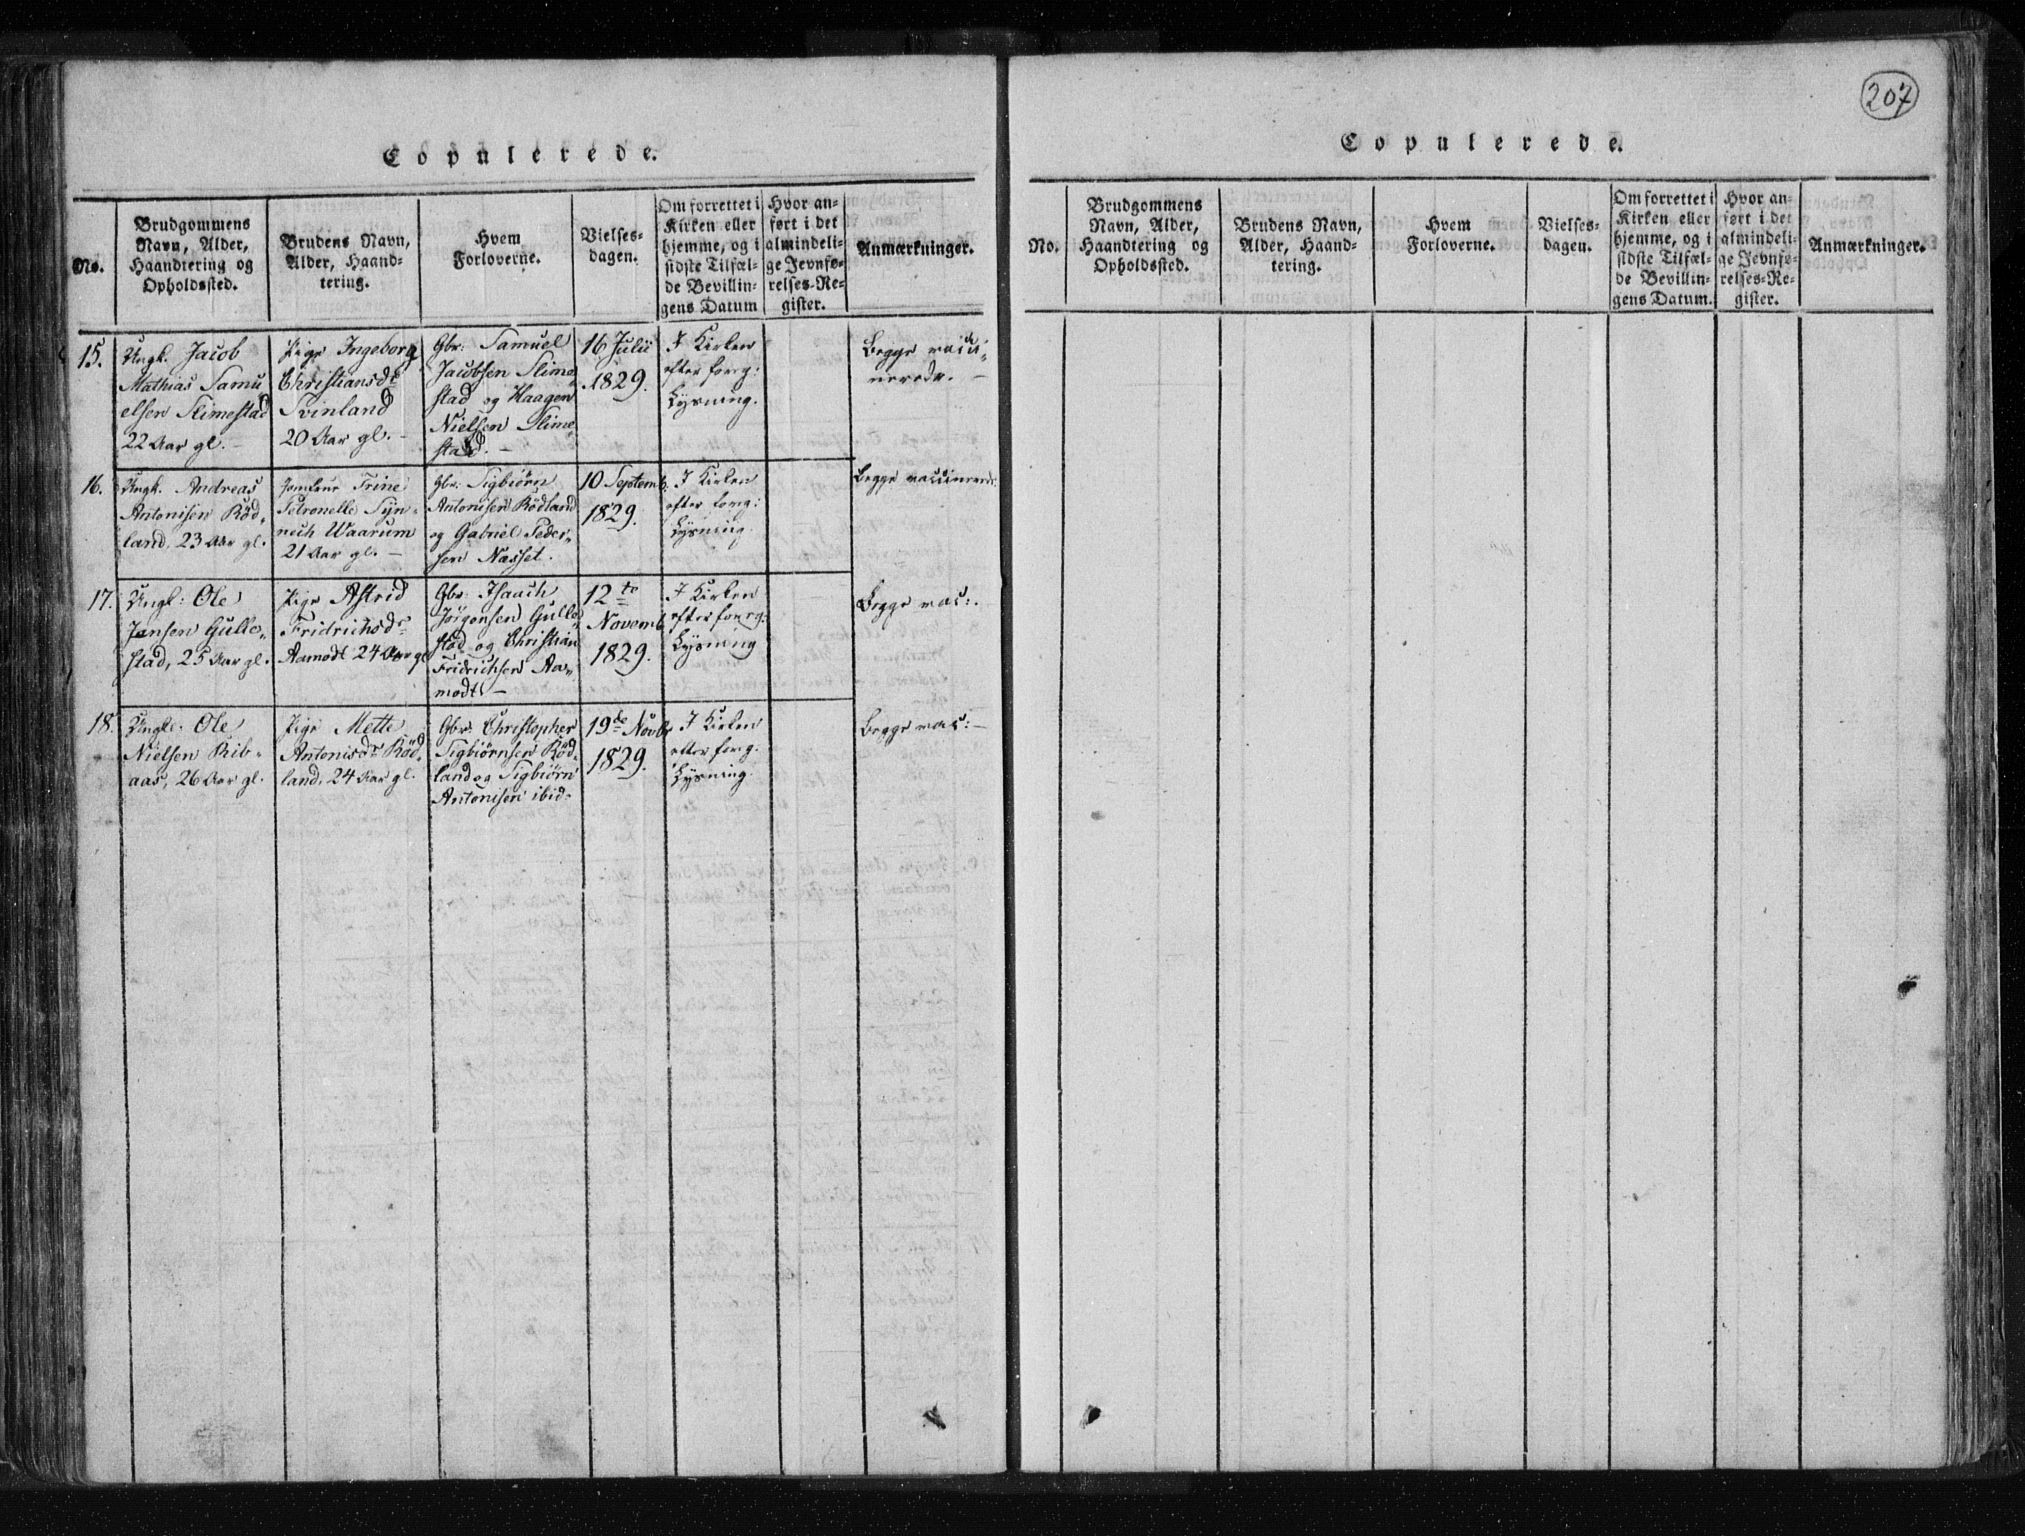 207
Copulerede.
No.
Brudgommens
Navn, Alder,
Haandtering og
Opholdssted.
Brudens Navn,
Alder, Haand-
tering.
Hvem
Forloverne.
Vielses-
dagen.
Om forrettet i
Kirken eller
hjemme, og i
sidste Tilfæl-
de Bevillin-
gens Datum
Hvor an-
ført i det
almindeli-
ge Jevnfø-
relses-Re-
gister.
Anmærkninger.
15.
Ungk. Jacob
Mathias Samu
elsen Slimestad
22 Aar gl. -
Pige Ingeborg
Christiansdr
Svinland
20 Aar gl. -
Gbr: Samuel
Jacobsen Slime
stad og Haagen
Nielsen Slime
stad. -
16 Julii
1829.
I Kirken
efter foreg:
Lysning.
Begge vacci-
nerede. -
16.
Ungk. Andreas
Antonisen Röd-
land, 23 Aar gl.
Jomfrue Trine
Petronelle Syn-
nech Waarum
21 Aar gl. -
Gbr: Sigbiörn
Antonisen Rödland
og Gabriel Peder-
sen Næsset.
10 Septemb.
1829.
I Kirken
efter foreg:
Lysning.
Begge vaccinerede.
17.
Ungk: Ole
Jansen Gulle-
stad, 25 Aar gl.
Pige Astrid
Fridrichsdr
Aamodt 24 Aar gl
Gbr: Isaach
Jørgensen Gulle
stad og Christian
Fridrichsen Aa-
modt -
12te
Novemb
1829.
I Kirken
efter foreg:
Lysning
Begge vac:.
18.
Ungk: Ole
Nielsen Rib-
aas, 26 Aar gl.
Pige Mette
Antonisdr Röd-
land, 24 Aar gl.
Gbr: Christopher
Sigbiörnsen Röd-
land og Sigbiörn
Antonisen ibid-
19de Novbr
1829.
I Kirken
efter foreg.
Lysning.
Begge vac: -
Copulerede.
No.
Brudgommens
Navn, Alder,
Haandtering og
Opholdssted.
Brudens Navn,
Alder, Haand-
tering.
Hvem
Forloverne.
Vielses-
dagen.
Om forrettet i
Kirken eller
hjemme, og i
sidste Tilfæl-
de Bevillin-
gens Datum.
Hvor an-
ført i det
almindeli-
ge Jevnfø-
relses-Re-
gister.
Anmærkninger.